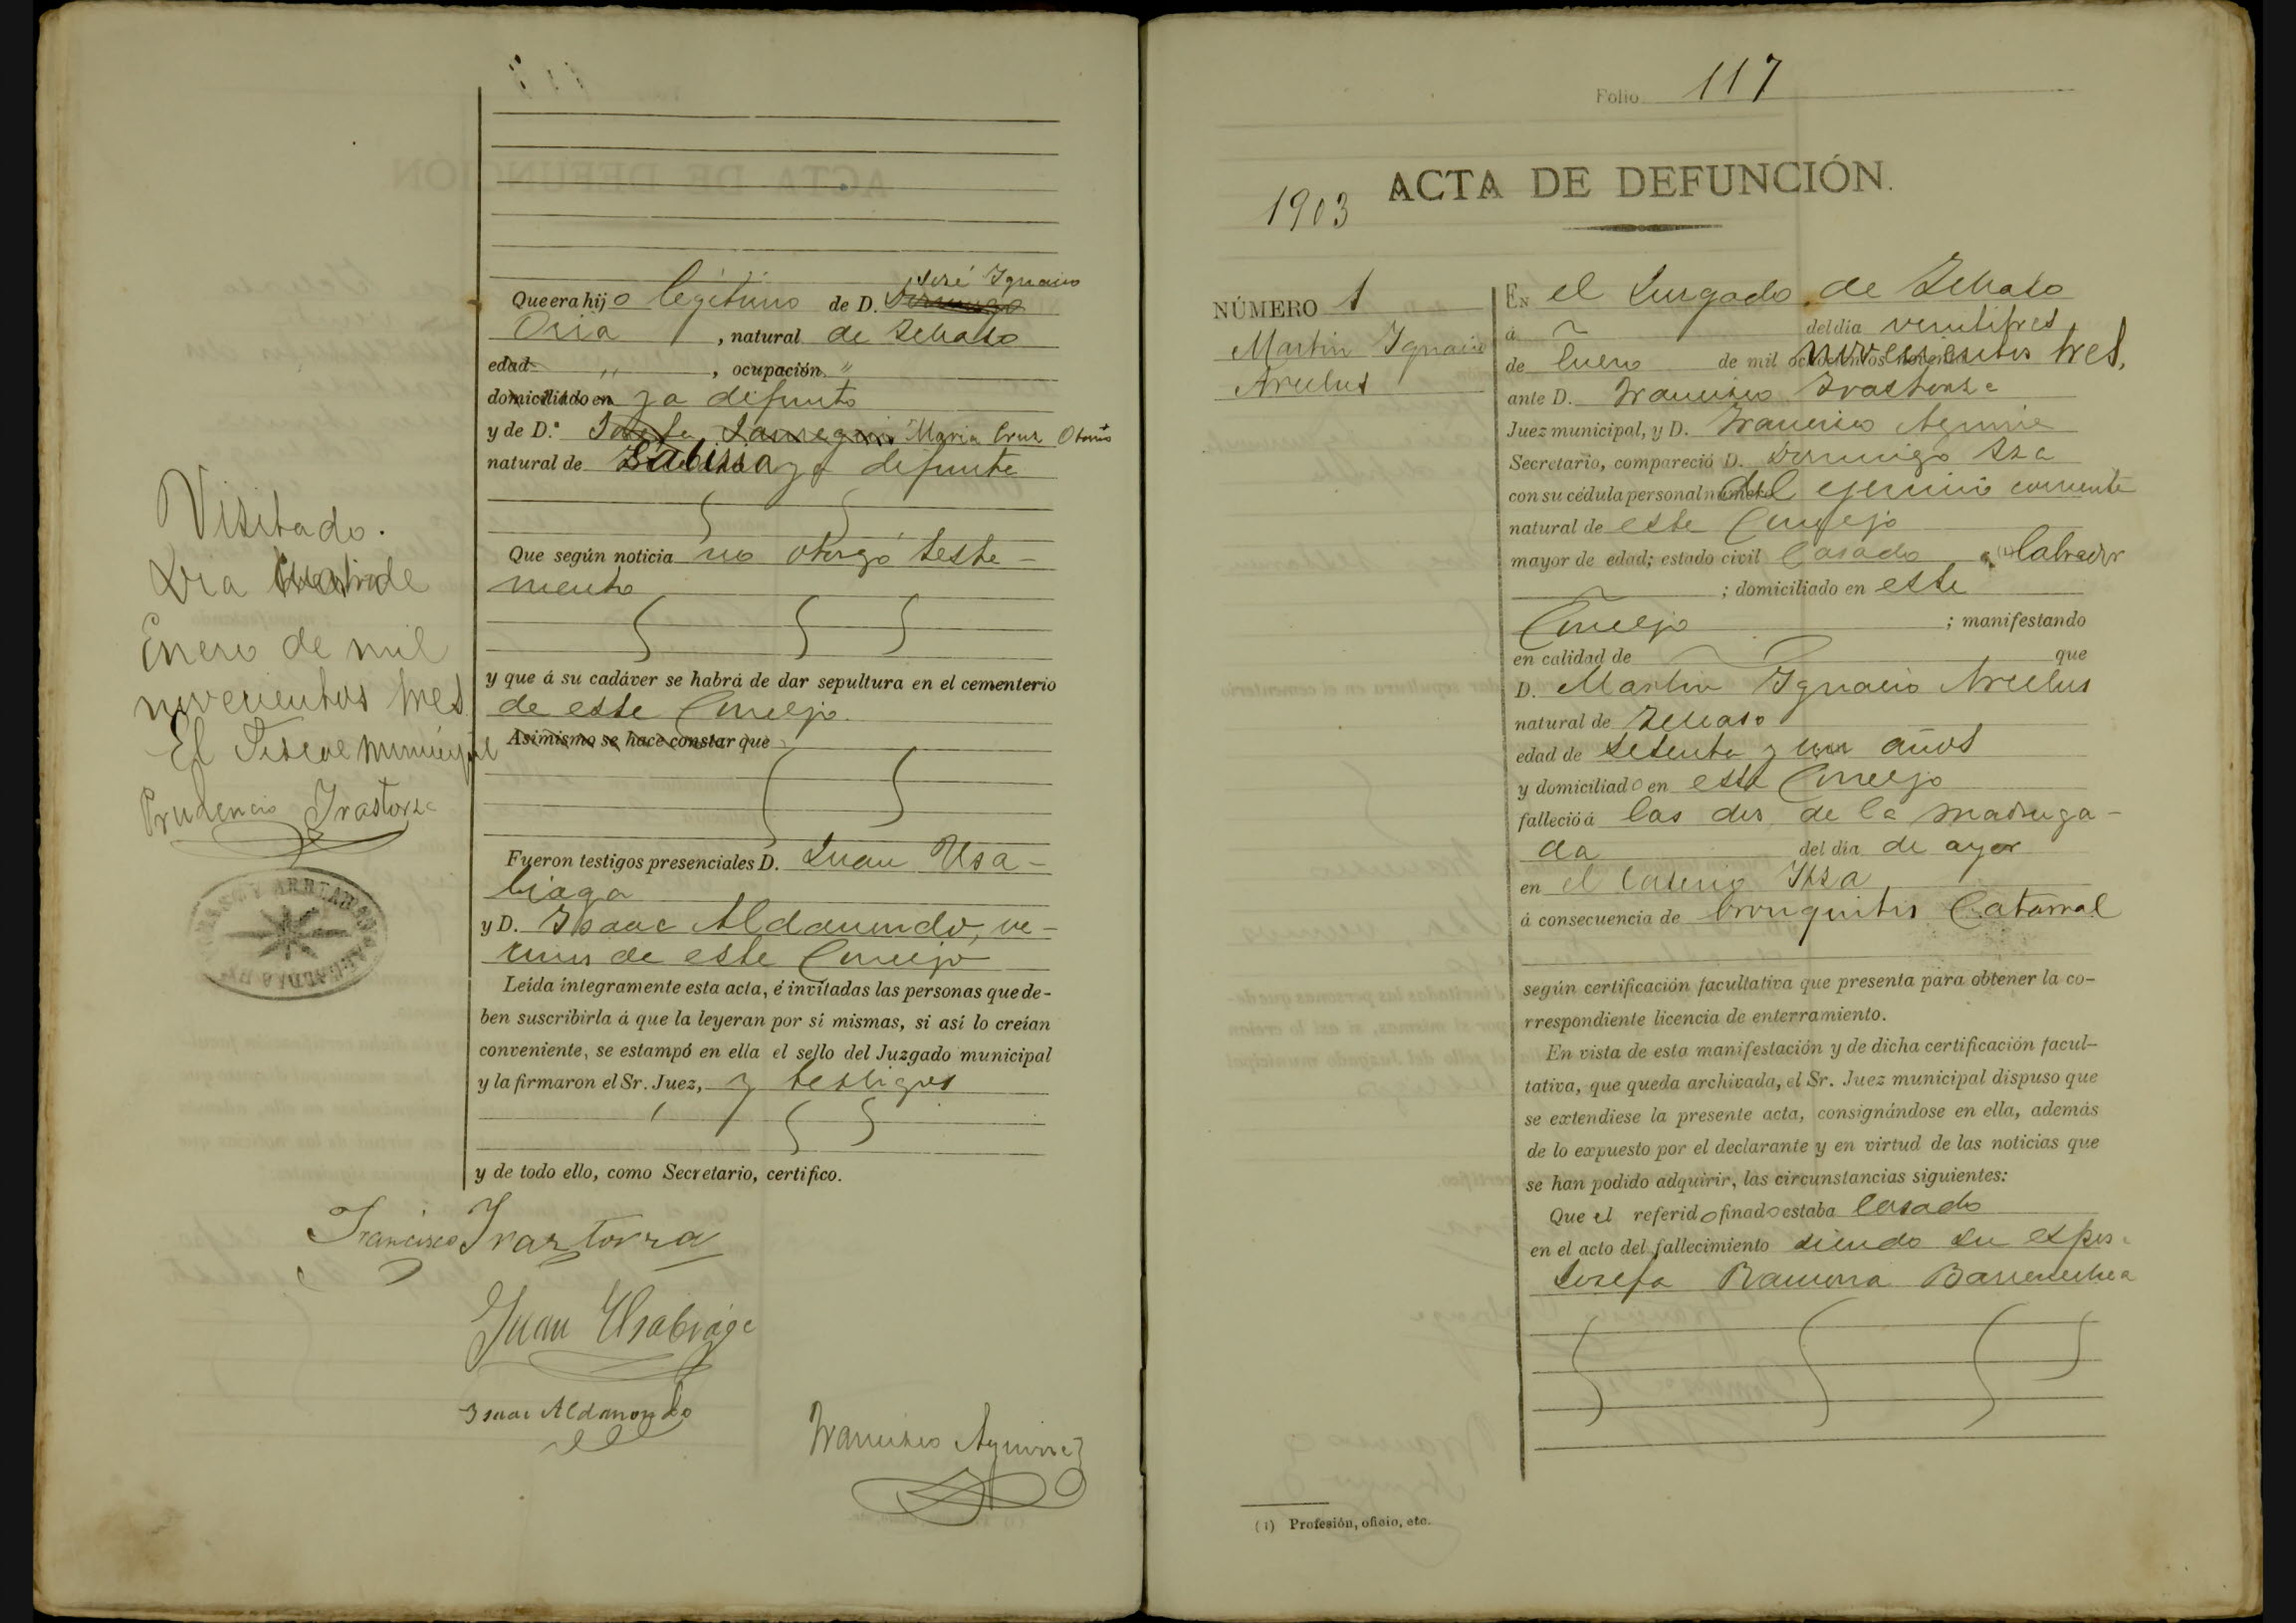 Que era hijo legitimo de D. Domingo José Ignacio
Oria, natural de Ichaso
edad „ , ocupación „
domiciliado en ya difunto
y de D.ª Josefa María Cruz Otaño
natural de ya difunta
Que según noticia no otorgó testa-
mento
y que á su cadáver se habrá de dar sepultura en el cementerio
de este Concejo.
Asimismo se hace constar que
Fueron testigos presenciales D. Juan Usa-
biaga
y D. Isaac Aldamondo, ve-
cinos de este Concejo
Leída íntegramente esta acta, é invitadas las personas que de-
ben suscribirla á que la leyeran por sí mismas, si así lo creían
conveniente, se estampó en ella el sello del Juzgado municipal
y la firmaron el Sr. Juez, y testigos
y de todo ello, como Secretario, certifico.
Francisco Irastorza
Juan Usabiaga
Isaac Aldamondo
Francisco Aguirre
Visitado.
Dia de
Enero de mil
novecientos tres
El Fiscal municipal
Prudencio Irastorza
Folio 117
1903
ACTA DE DEFUNCIÓN.
NÚMERO 1
Martin Ignacio
Arcelus
En el Juzgado de Ichaso
á del día veintitres
de Enero de mil ochocientos novecientos tres,
ante D. Francisco Irastorza
Juez municipal, y D. Francisco Aguirre
Secretario, compareció D. Domingo Iza
con su cédula personal número del ejercicio corriente
natural de este Concejo
mayor de edad; estado civil Casado (1) labrador
; domiciliado en este
Concejo ; manifestando
en calidad de que
D. Martin Ignacio Arcelus
natural de Ichaso
edad de setenta y un años
y domiciliado en este Concejo
falleció á las dos de la madruga-
da del día de ayer
en el Caserio
á consecuencia de bronquitis Catarral
según certificación facultativa que presenta para obtener la co-
rrespondiente licencia de enterramiento.
En vista de esta manifestación y de dicha certificación facul-
tativa, que queda archivada, el Sr. Juez municipal dispuso que
se extendiese la presente acta, consignándose en ella, además
de lo expuesto por el declarante y en virtud de las noticias que
se han podido adquirir, las circunstancias siguientes:
Que el referido finado estaba Casado
en el acto del fallecimiento siendo su espos.
Josefa Ramona Barrenechea
(1) Profesión, oficio, etc.